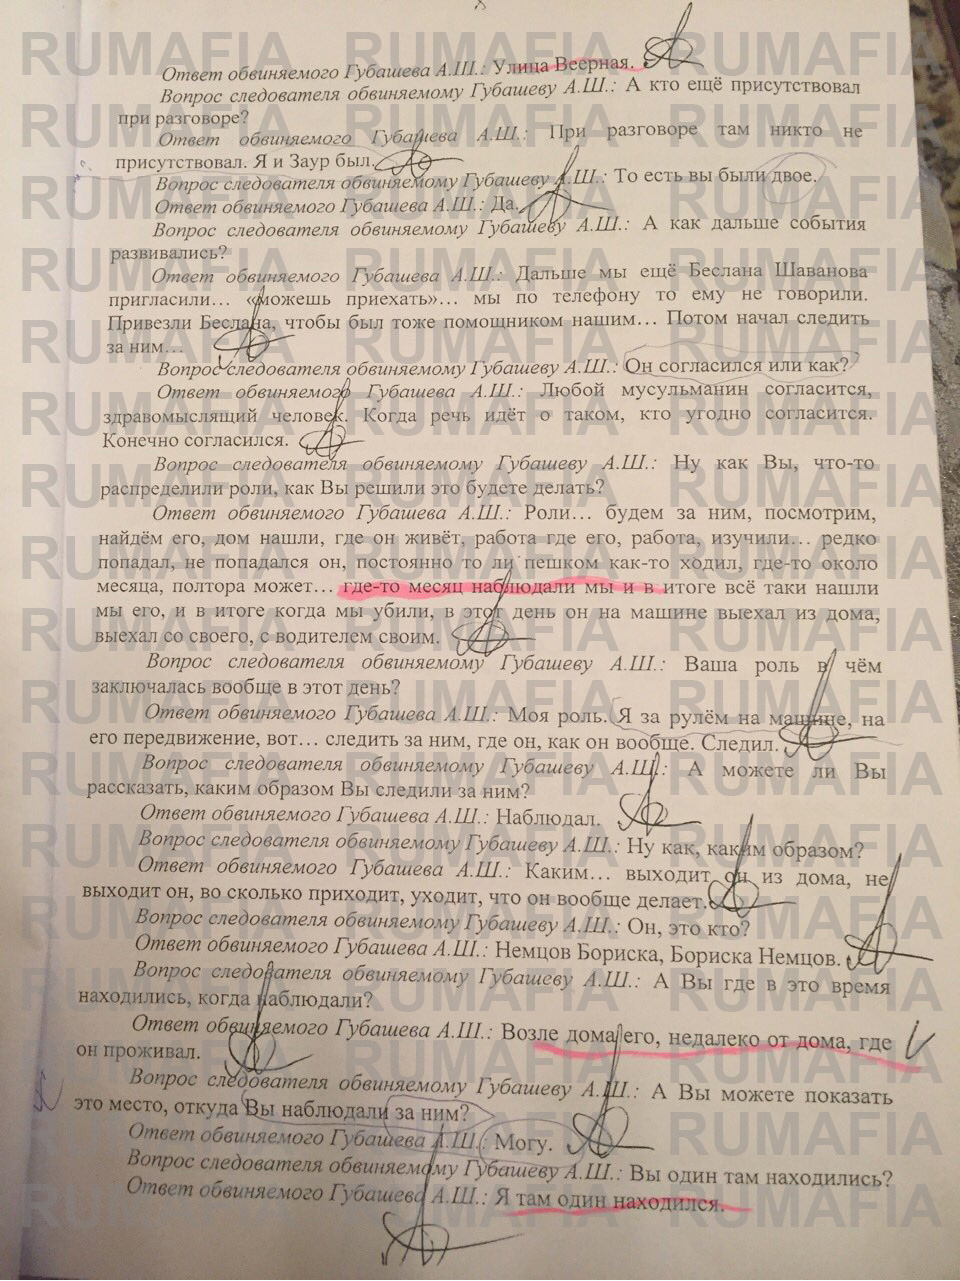 Ответ обвиняемого Губашева А.Ш.: Улица Веерная.
Вопрос следователя обвиняемому Губашеву А.Ш.: А кто ещё присутствовал
при разговоре?
Ответ обвиняемого Губашева А.Ш.: При разговоре там никто не
присутствовал. Я и Заур был.
Вопрос следователя обвиняемому Губашеву А.Ш.: То есть вы были двое.
Ответ обвиняемого Губашева А.Ш.: Да.
Вопрос следователя обвиняемому Губашеву А.Ш.: А как дальше события
развивались?
Ответ обвиняемого Губашева А.Ш.: Дальше мы ещё Беслана Шаванова
пригласили… «можешь приехать»… мы по телефону то ему не говорили.
Привезли Беслана, чтобы был тоже помощником нашим… Потом начал следить
за ним…
Вопрос следователя обвиняемому Губашеву А.Ш.: Он согласился или как?
Ответ обвиняемого Губашева А.Ш.: Любой мусульманин согласится,
здравомыслящий человек. Когда речь идёт о таком, кто угодно согласится.
Конечно согласился.
Вопрос следователя обвиняемому Губашеву А.Ш.: Ну как Вы, что-то
распределили роли, как Вы решили это будете делать?
Ответ обвиняемого Губашева А.Ш.: Роли… будем за ним, посмотрим,
найдём его, дом нашли, где он живёт, работа где его, работа, изучили… редко
попадал, не попадался он, постоянно то ли пешком как-то ходил, где-то около
месяца, полтора может… где-то месяц наблюдали мы и в итоге всё таки нашли
мы его, и в итоге когда мы убили, в этот день он на машине выехал из дома,
выехал со своего, с водителем своим.
Вопрос следователя обвиняемому Губашеву А.Ш.: Ваша роль в чём
заключалась вообще в этот день?
Ответ обвиняемого Губашева А.Ш.: Моя роль. Я за рулём на машине, на
его передвижение, вот… следить за ним, где он, как он вообще. Следил.
Вопрос следователя обвиняемому Губашеву А.Ш.: А можете ли Вы
рассказать, каким образом Вы следили за ним?
Ответ обвиняемого Губашева А.Ш.: Наблюдал.
Вопрос следователя обвиняемому Губашеву А.Ш.: Ну как, каким образом?
Ответ обвиняемого Губашева А.Ш.: Каким… выходит он из дома, не
выходит он, во сколько приходит, уходит, что он вообще делает.
Вопрос следователя обвиняемому Губашеву А.Ш.: Он, это кто?
Ответ обвиняемого Губашева А.Ш.: Немцов Бориска, Бориска Немцов.
Вопрос следователя обвиняемому Губашеву А.Ш.: А Вы где в это время
находились, когда наблюдали?
Ответ обвиняемого Губашева А.Ш.: Возле дома его, недалеко от дома, где
он проживал.
Вопрос следователя обвиняемому Губашеву А.Ш.: А Вы можете показать
это место, откуда Вы наблюдали за ним?
Ответ обвиняемого Губашева А.Ш.: Могу.
Вопрос следователя обвиняемому Губашеву А.Ш.: Вы один там находились?
Ответ обвиняемого Губашева А.Ш.: Я там один находился.